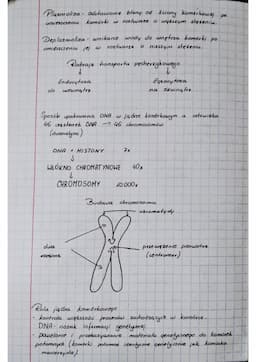 Plazmoliza - odstawanie błony od ściany komórkowej po
umieszczeniu komórki w roztworze o większym stężeniu.
Deplazmoliza - wnikanie wody do wnętrza komórki po
umieszczeniu jej w roztworze o niższym stężeniu.
Rodzaje transportu pęcherzykowego
Endocytoza Egzocytoza
do wewnątrz na zewnątrz
Sposób upakowania DNA w jądrze komórkowym u człowieka
46 cząsteczek DNA → 46 chromosomów
DNA + HISTONY 7x
WŁÓKNO CHROMATYNOWE 40x
CHROMOSOMY 10 000x
Budowa chromosomu
chromatydy
dwa
ramiona
przewężenie pierwotne
(centromer)
Rola jądra komórkowego
- kontrola większości procesów zachodzących w komórce.
DNA - nośnik informacji genetycznej.
- powielanie i przekazywanie materiału genetycznego do komórek
potomnych (komórki potomne identyczne genetycznie jak komórka
macierzysta).